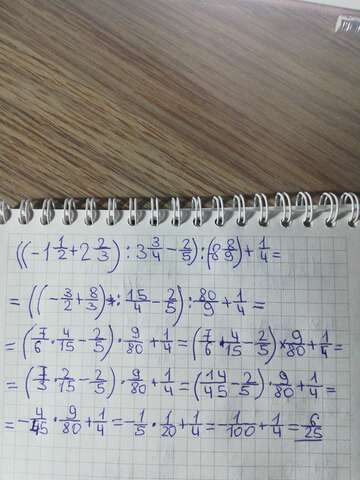 ((-1 1/2 + 2 2/3) : 3 3/4 - 2/5) : (8 8/9) + 1/4 =
= ((-3/2 + 8/3) : 15/4 - 2/5) : 80/9 + 1/4 =
= (7/6 · 4/15 - 2/5) · 9/80 + 1/4 = (7/6 · 4/15 - 2/5) × 9/80 + 1/4 =
= (7/3 · 2/15 - 2/5) · 9/80 + 1/4 = (14/45 - 2/5) · 9/80 + 1/4 =
= -4/45 · 9/80 + 1/4 = -1/5 · 1/20 + 1/4 = -1/100 + 1/4 = 6/25